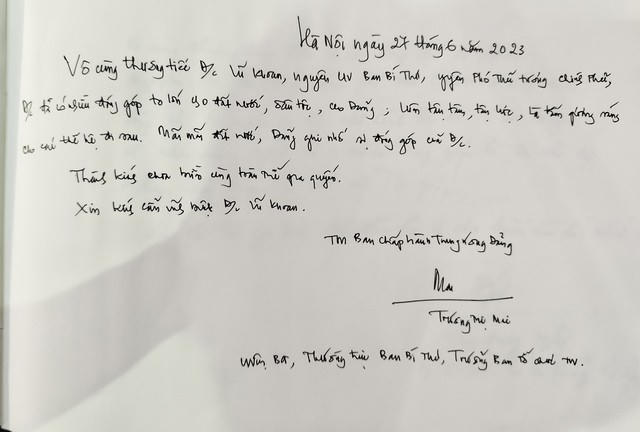 Hà Nội ngày 27 tháng 6 năm 2023
Vô cùng thương tiếc Đ/c Vũ Khoan, nguyên UV Ban Bí Thư, nguyên Phó Thủ tướng Chính Phủ,
Đ/c đã có nhiều đóng góp to lớn cho đất nước, dân tộc, cho Đảng; luôn tận tâm, tận lực, là tấm gương sáng
cho các thế hệ đi sau. Mãi mãi đất nước, Đảng ghi nhớ sự đóng góp của Đ/c.
Thành kính chia buồn cùng toàn thể gia quyến.
Xin kính cẩn vĩnh biệt Đ/c Vũ Khoan.
TM Ban Chấp hành Trung ương Đảng
Mai
Trương Thị Mai
UVBCT, Thường trực Ban Bí Thư, Trưởng Ban Tổ chức TW.